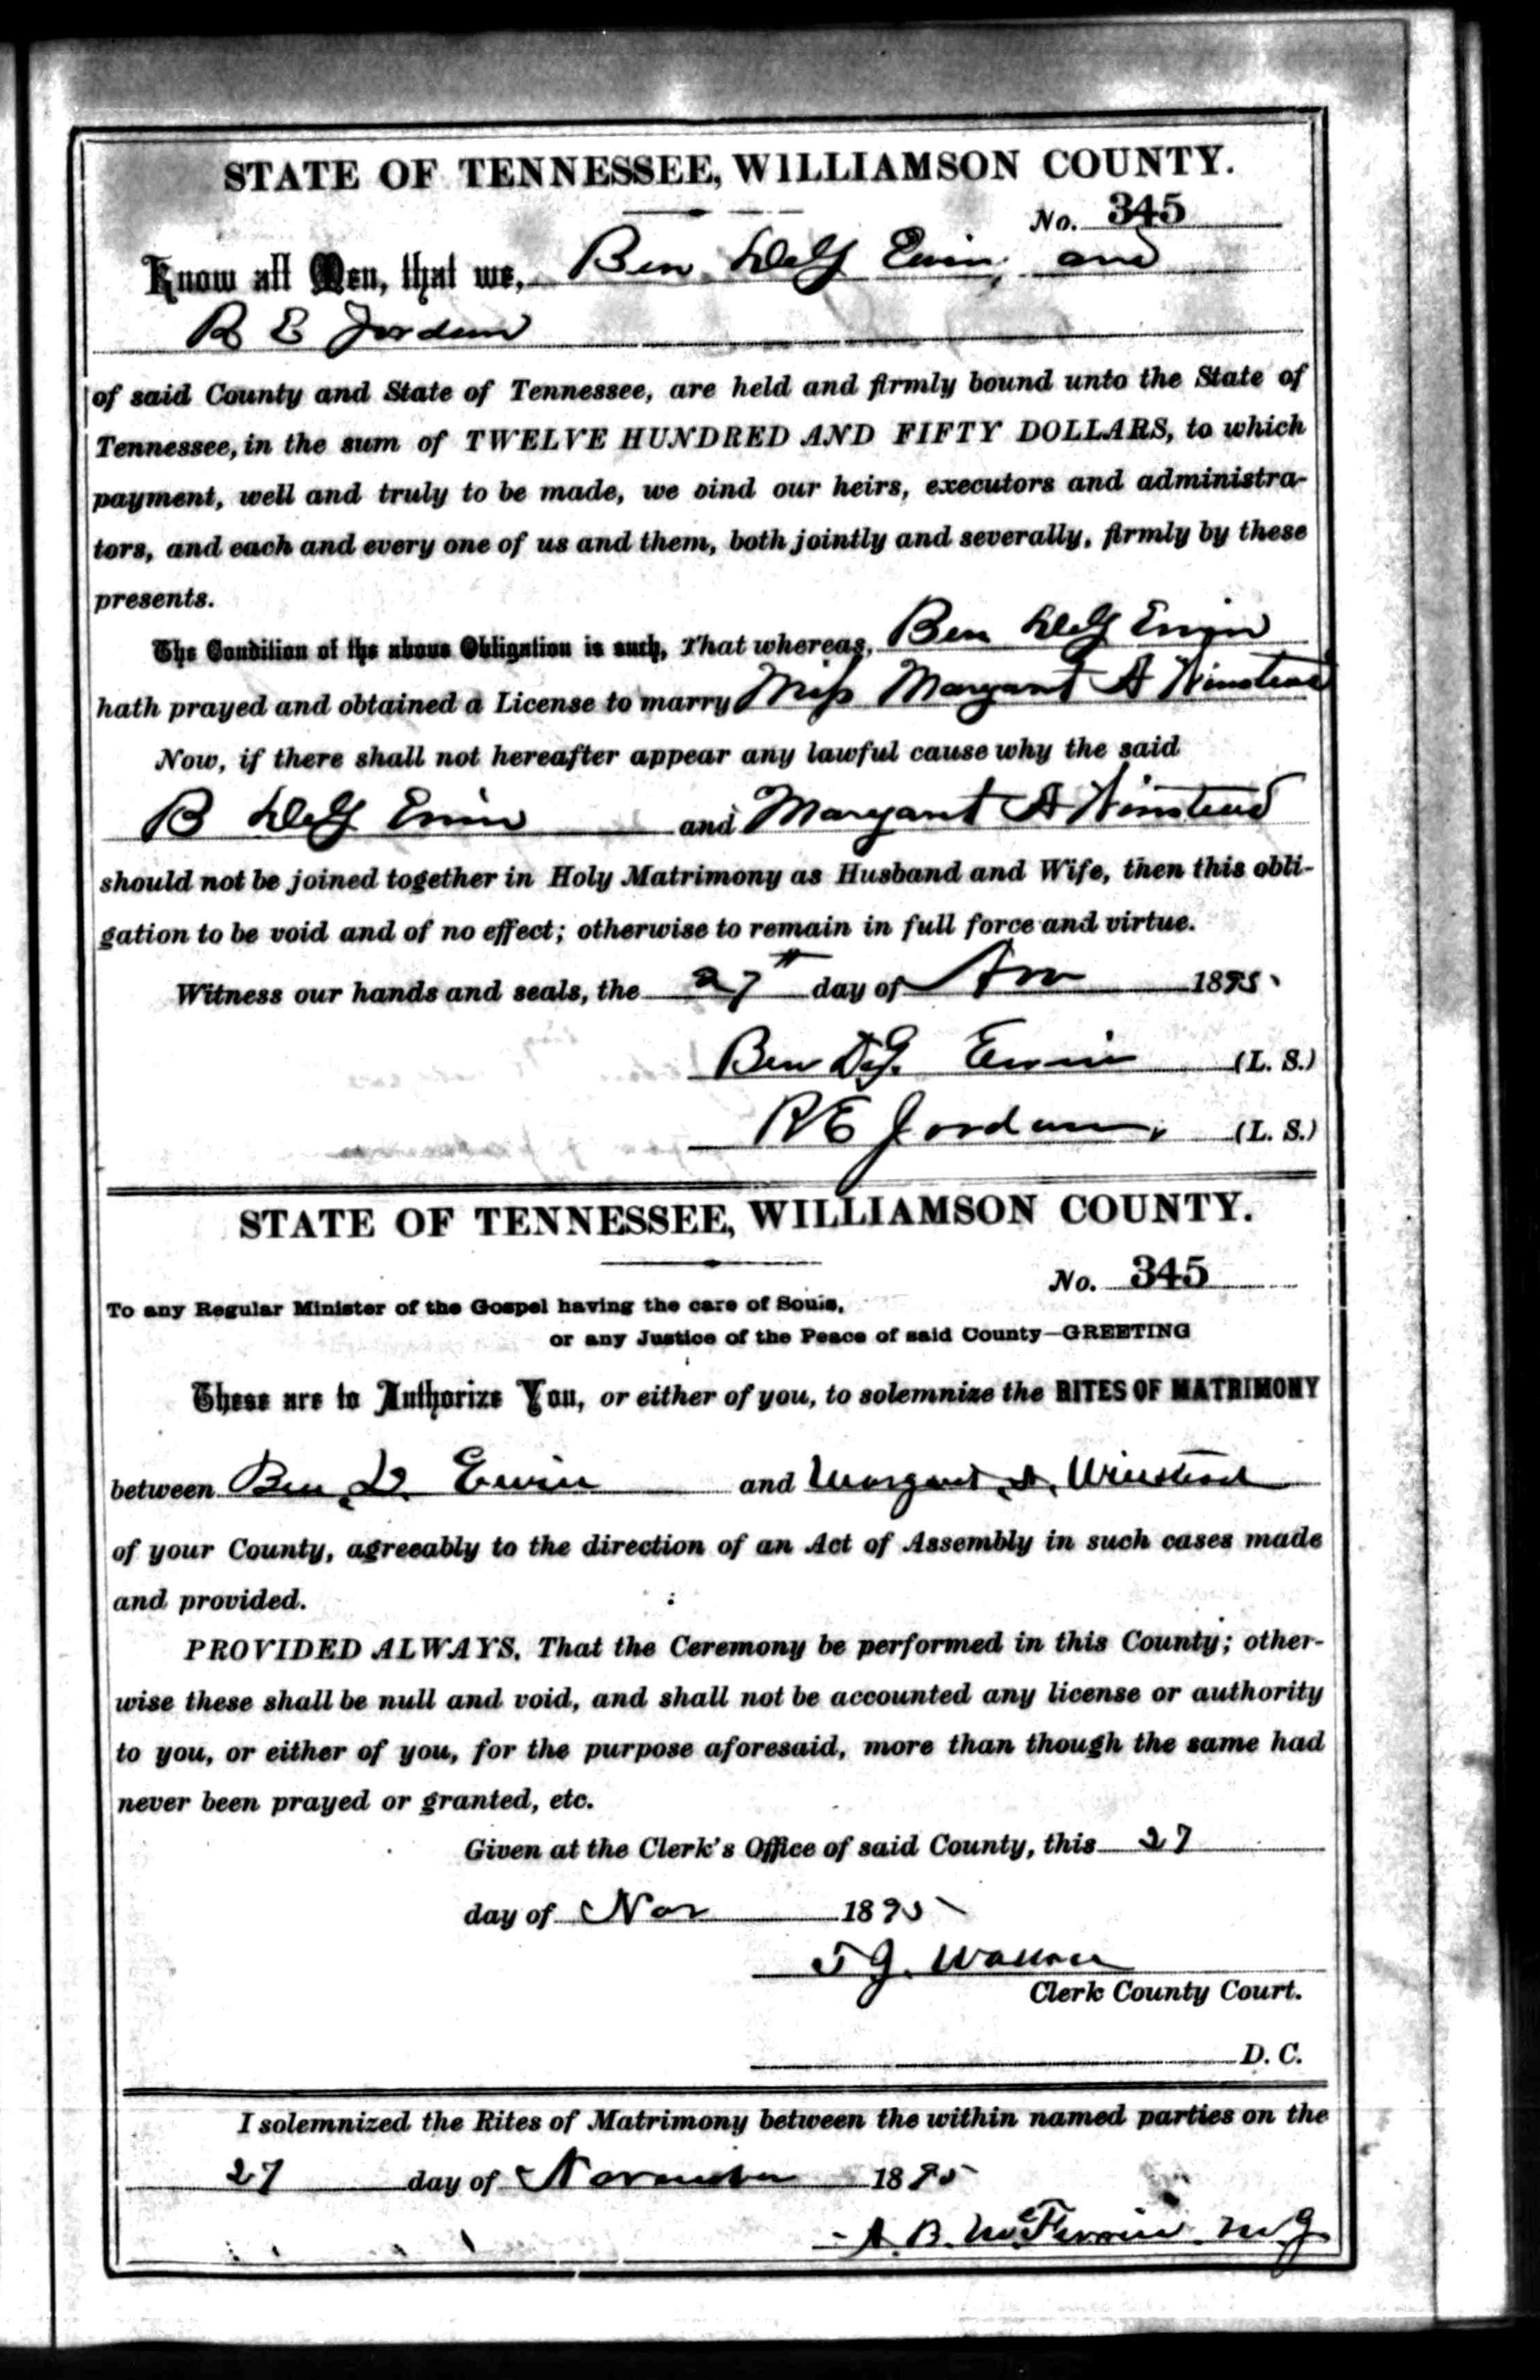 STATE OF TENNESSEE, WILLIAMSON COUNTY.
No. 345
Know all Men, that we, Ben Erwin, and
R E Jordan
of said County and State of Tennessee, are held and firmly bound unto the State of
Tennessee, in the sum of TWELVE HUNDRED AND FIFTY DOLLARS, to which
payment, well and truly to be made, we bind our heirs, executors and administra-
tors, and each and every one of us and them, both jointly and severally, firmly by these
presents.
The Condition of the above Obligation is such, That whereas, Ben Erwin
hath prayed and obtained a License to marry Miss Margaret A Winstead
Now, if there shall not hereafter appear any lawful cause why the said
B Erwin and Margaret A Winstead
should not be joined together in Holy Matrimony as Husband and Wife, then this obli-
gation to be void and of no effect; otherwise to remain in full force and virtue.
Witness our hands and seals, the 27th day of Nov 1895
Ben Erwin (L. S.)
R E Jordan (L. S.)
STATE OF TENNESSEE, WILLIAMSON COUNTY.
No. 345
To any Regular Minister of the Gospel having the care of Souls,
or any Justice of the Peace of said County—GREETING
These are to Authorize You, or either of you, to solemnize the RITES OF MATRIMONY
between Ben. D. Erwin and Margaret A. Winstead
of your County, agreeably to the direction of an Act of Assembly in such cases made
and provided.
PROVIDED ALWAYS, That the Ceremony be performed in this County; other-
wise these shall be null and void, and shall not be accounted any license or authority
to you, or either of you, for the purpose aforesaid, more than though the same had
never been prayed or granted, etc.
Given at the Clerk's Office of said County, this 27
day of Nov 1895
J. Wallace
Clerk County Court.
D. C.
I solemnized the Rites of Matrimony between the within named parties on the
27 day of November 1895
B. McFerrin M G